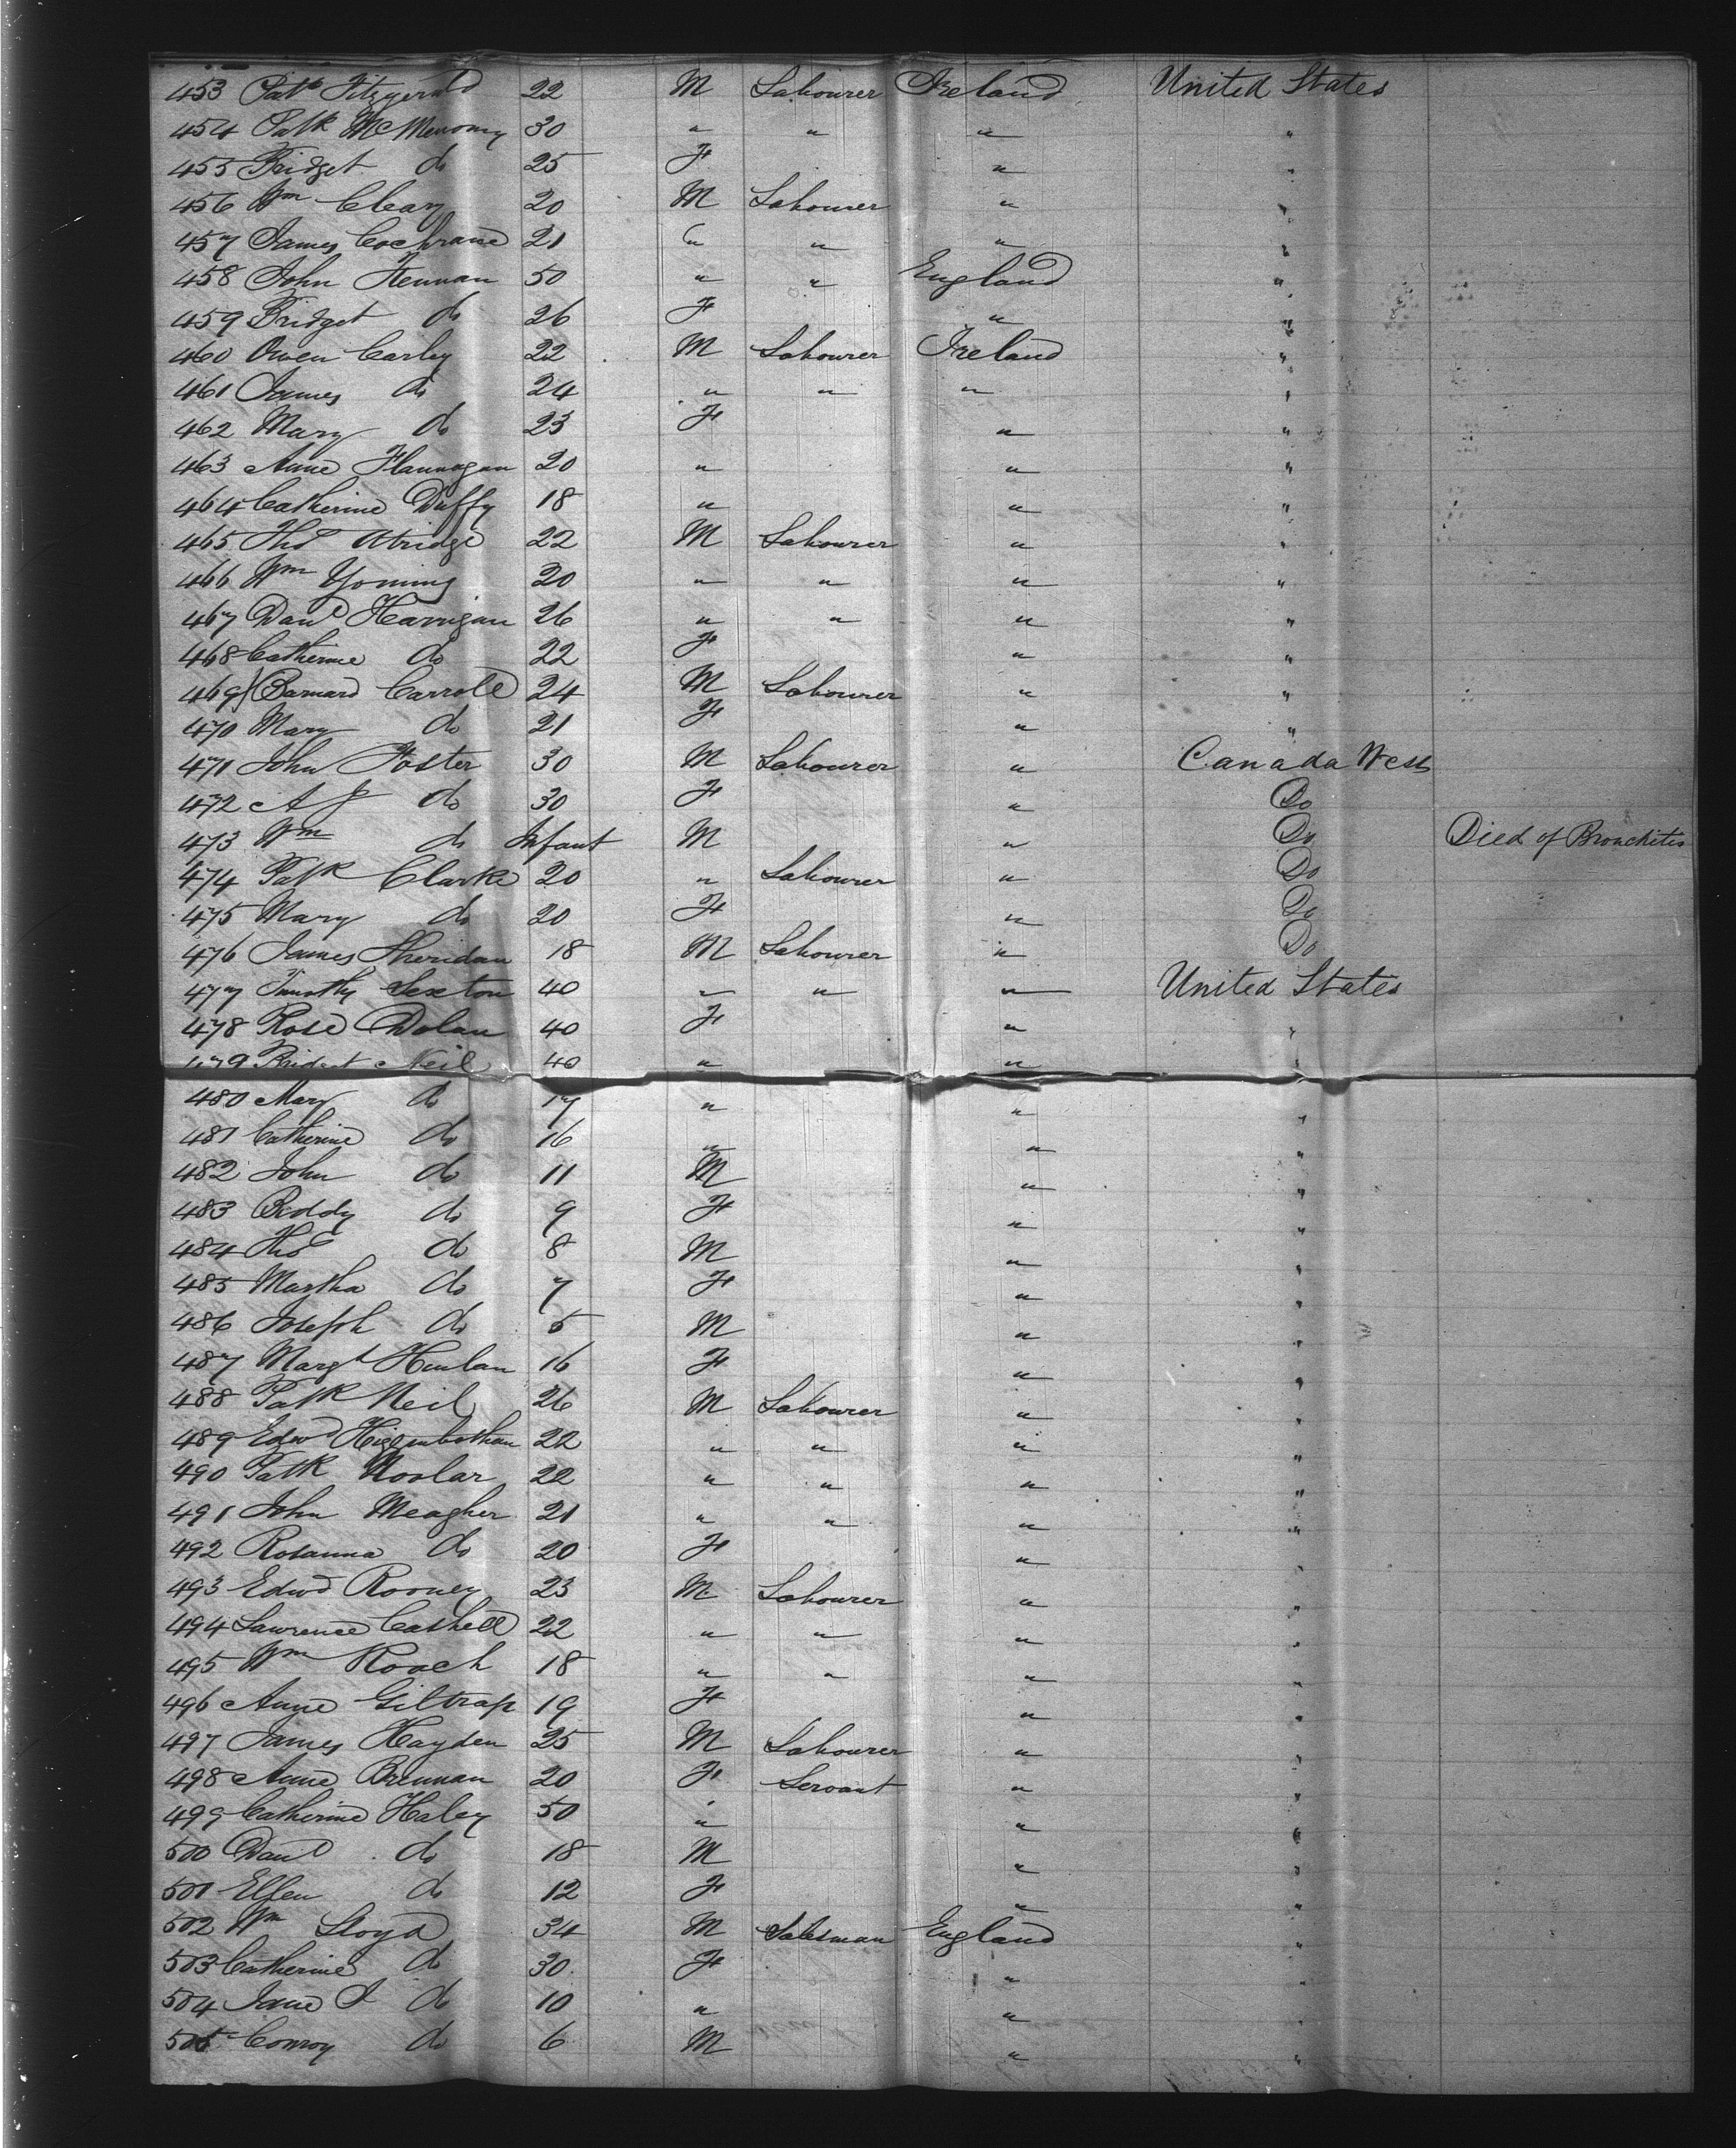 453 Patk Fitzgerald 22 M Labourer Ireland United States
454 Patk McMenomy 30 " " " "
455 Bridget do 25 F " "
456 Wm Cleary 20 M Labourer " "
457 James Cochrane 21 " " " "
458 John Heenan 50 " " England "
459 Bridget do 26 F " "
460 Owen Carley 22 M Labourer Ireland "
461 James do 24 " " " "
462 Mary do 23 F " "
463 Anne Flannagan 20 " " "
464 Catherine Duffy 18 " " "
465 Thos 22 M Labourer " "
466 Wm Yoming 20 " " " "
467 Danl Harrigan 26 " " " "
468 Catherine do 22 F " "
469 Barnard Carroll 24 M Labourer " "
470 Mary do 21 F " "
471 John Foster 30 M Labourer " Canada West
472 A J do 30 F " Do
473 Wm do Infant M " Do Died of Bronchitis
474 Patk Clarke 20 " Labourer " Do
475 Mary do 20 F " Do
476 James Sheridan 18 M Labourer " Do
477 Timothy Sexton 40 " " " United States
478 Rose Dolan 40 F " "
479 Bridget Neil 40 " " "
480 Mary do 17 " " "
481 Catherine do 16 " " "
482 John do 11 M " "
483 Biddy do 9 F " "
484 Thos do 8 M " "
485 Martha do 7 F " "
486 Joseph do 5 M " "
487 Margt Hinlan 16 F " "
488 Patk Neil 26 M Labourer " "
489 Edwd Higginbotham 22 " " " "
490 Patk 22 " " " "
491 John Meagher 21 " " " "
492 Rosanna do 20 F " "
493 Edwd Rooney 23 M Labourer " "
494 Lawrence Cashell 22 " " " "
495 Wm Roach 18 " " " "
496 Anne Giltrap 19 F " "
497 James Hayden 25 M Labourer " "
498 Anne Brennan 20 F Servant " "
499 Catherine Haley 50 " " "
500 Danl do 18 M " "
501 Ellen do 12 F " "
502 Wm Lloyd 34 M Salesman England "
503 Catherine do 30 F " "
504 Jane I do 10 " " "
505 Conroy do 6 M " "